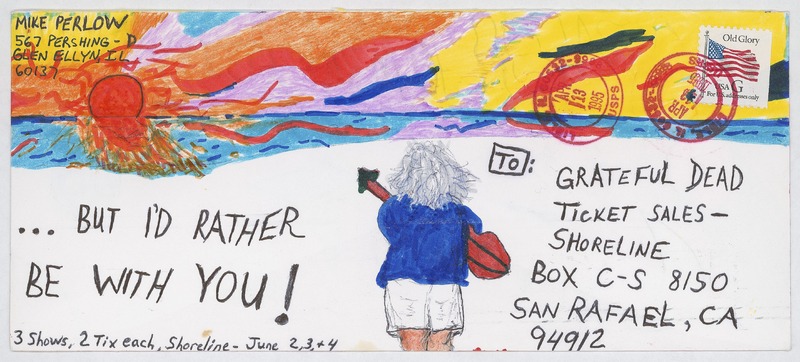 MIKE PERLOW
567 PERSHING - D
GLEN ELLYN IL
60137
Old Glory
USA G
For U.S. addresses only
APR
13
1995
USPS
APR
1995
TO:
GRATEFUL DEAD
TICKET SALES -
SHORELINE
BOX C-S 8150
SAN RAFAEL, CA
94912
... BUT I'D RATHER
BE WITH YOU!
3 Shows, 2 Tix each, Shoreline - June 2, 3, + 4